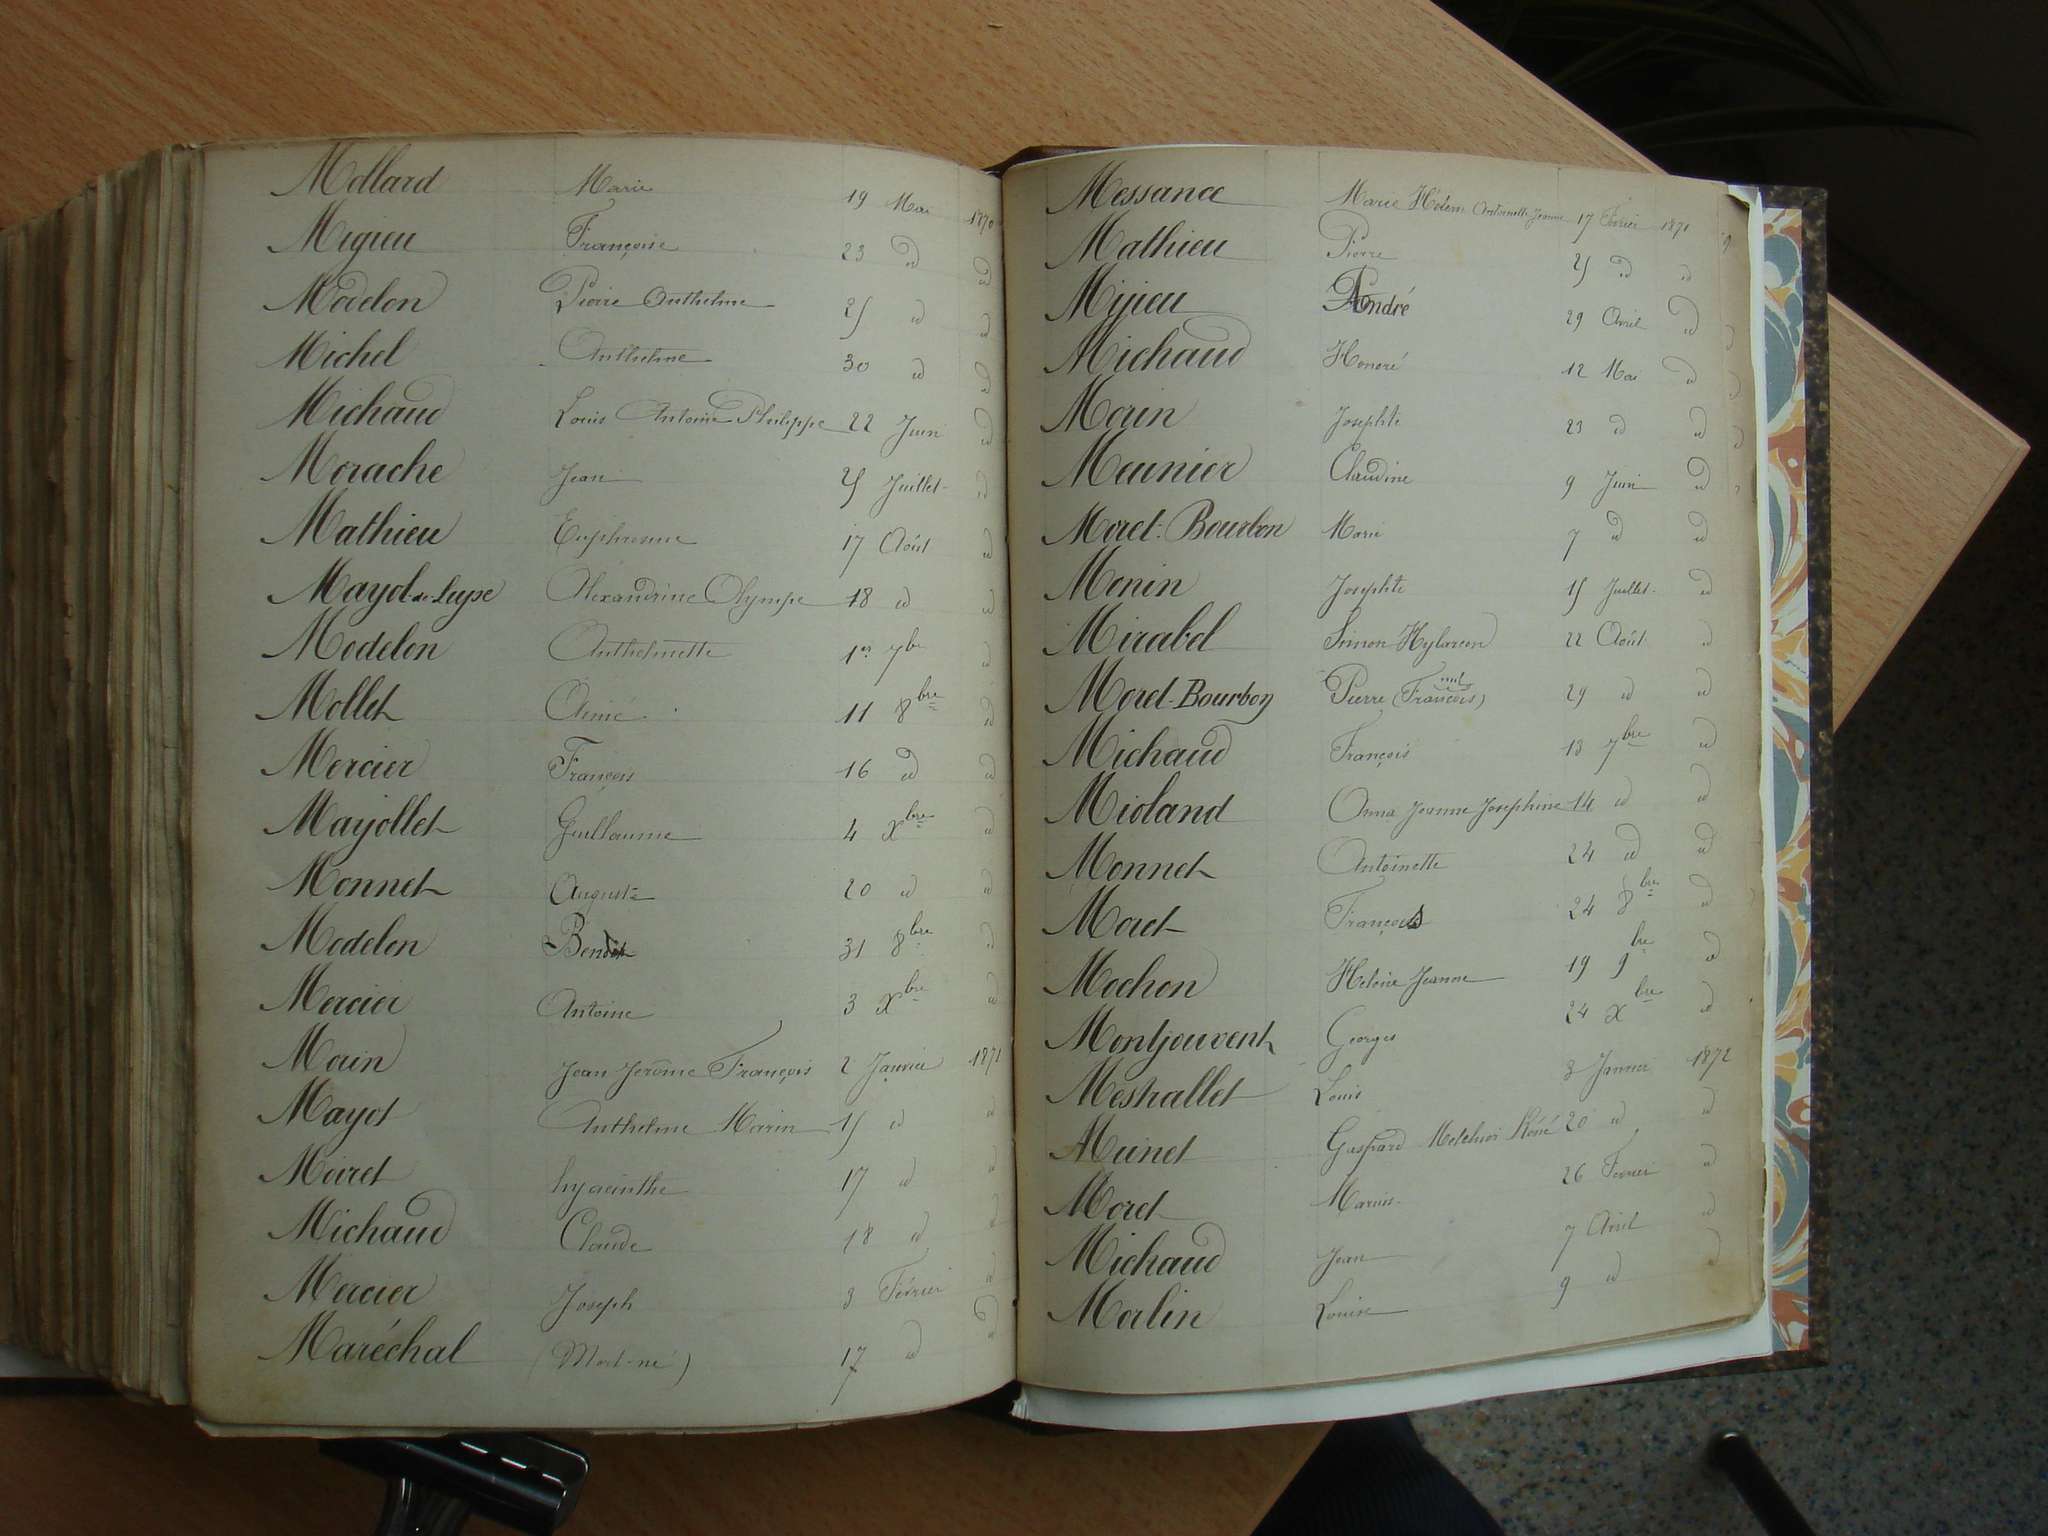 Mollard Marie 19 Mai 1870
Migieu Françoise 23 id id
Modelon Pierre Anthelme 25 id id
Michel Anthelme 30 id id
Michaud Louis Antoine Philippe 22 Juin id
Morache Jean 25 Juillet id
Mathieu Euphrosine 17 Août id
Mayot-de-Luyse Alexandrine Olympe 18 id id
Modelon Anthelmette 1er 7bre id
Mollet Aimé 11 8bre id
Mercier François 16 id id
Mayollet Guillaume 4 Xbre id
Monnet Auguste 20 id id
Modelon Benoit 31 8bre id
Mercier Antoine 3 Xbre id
Morin Jean Jerome François 2 Janvier 1871
Mayot Anthelme Marin 15 id id
Moiret hyacinthe 17 id id
Michaud Claude 18 id id
Mercier Joseph 3 Février id
Maréchal (Mort-né) 17 id id
Messance Marie Hélène Antoinette Jeanne 17 Février 1871
Mathieu Pierre 25 id id
Mijieu André 29 Avril id
Michaud Honoré 12 Mai id
Morin Josephte 23 id id
Meunier Claudine 9 Juin id
Moret-Bourbon Marie 7 id id
Monin Josephte 15 Juillet id
Mirabel Simon Hylareon 22 Août id
Moret-Bourbon Pierre (François) nul 29 id id
Michaud François 13 7bre id
Mioland Anna Jeanne Josephine 14 id id
Monnet Antoinette 24 id id
Moret François 24 8bre id
Mochon Heloïse Jeanne 19 9bre id
Montjouvent Georges 24 Xbre id
Mestrallet Louis 3 Janvier 1872
Munet Gaspard Melchior Réné 20 id id
Moret Marius 26 Fevrier id
Michaud Jean 7 Avril id
Morlin Louise 9 id id